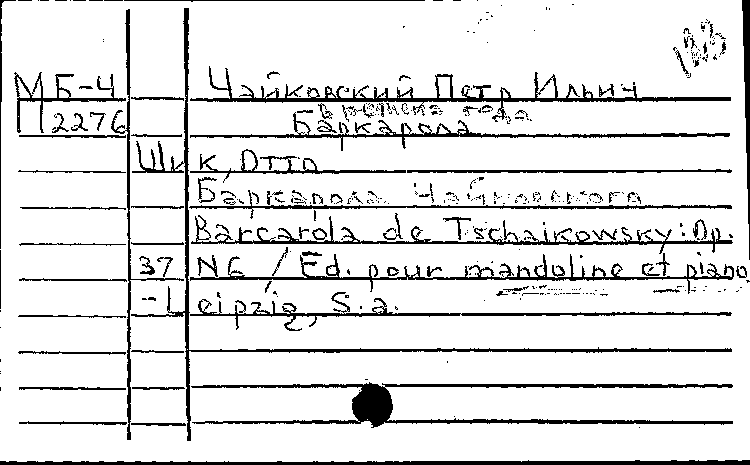 133
МБ-4 Чайковский Петр Ильич
П2276 времена года
Баркарола
Шик, Отто
Баркарола Чайковского
Barcarola de Tschaikowsky: Op.
37 N6 / Ed. pour mandoline et piano
-Leipzig, S.a.